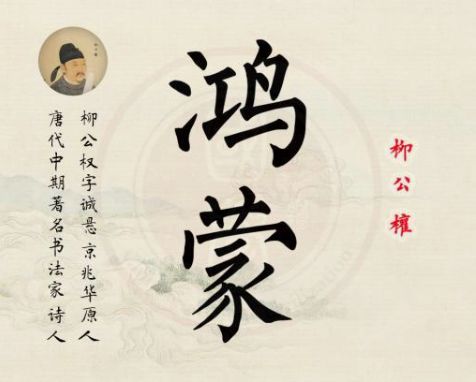 柳公權
鸿蒙
柳公权字诚悬京兆华原人
唐代中期著名书法家诗人